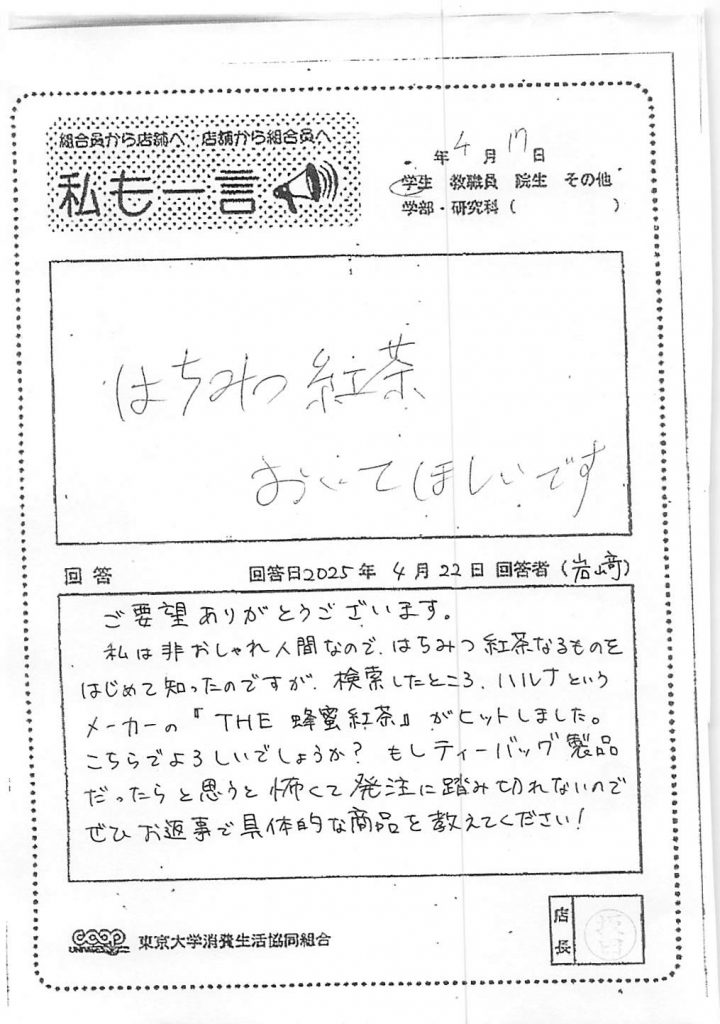 組合員から店舗へ 店舗から組合員へ
私も一言
年4月17日
学生 教職員 院生 その他
学部・研究科( )
はちみつ紅茶
おいてほしいです
回答 回答日2025年 4月22日 回答者(岩崎)
ご要望ありがとうございます。
私は非おしゃれ人間なので、はちみつ紅茶なるものを
はじめて知ったのですが、検索したところ、ハルナという
メーカーの『THE 蜂蜜紅茶』がヒットしました。
こちらでよろしいでしょうか? もしティーバッグ製品
だったらと思うと怖くて発注に踏み切れないので
ぜひお返事で具体的な商品を教えてください!
店長
coop 東京大学消費生活協同組合